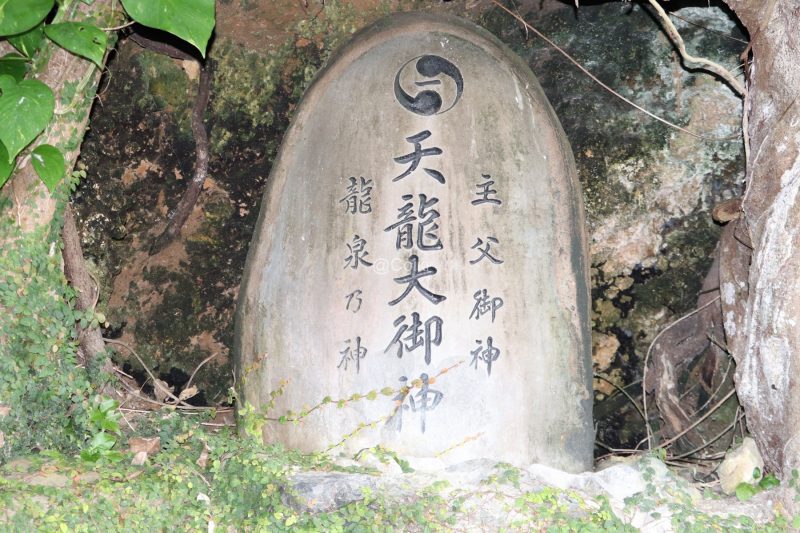 主父御神
天龍大御神
龍泉乃神